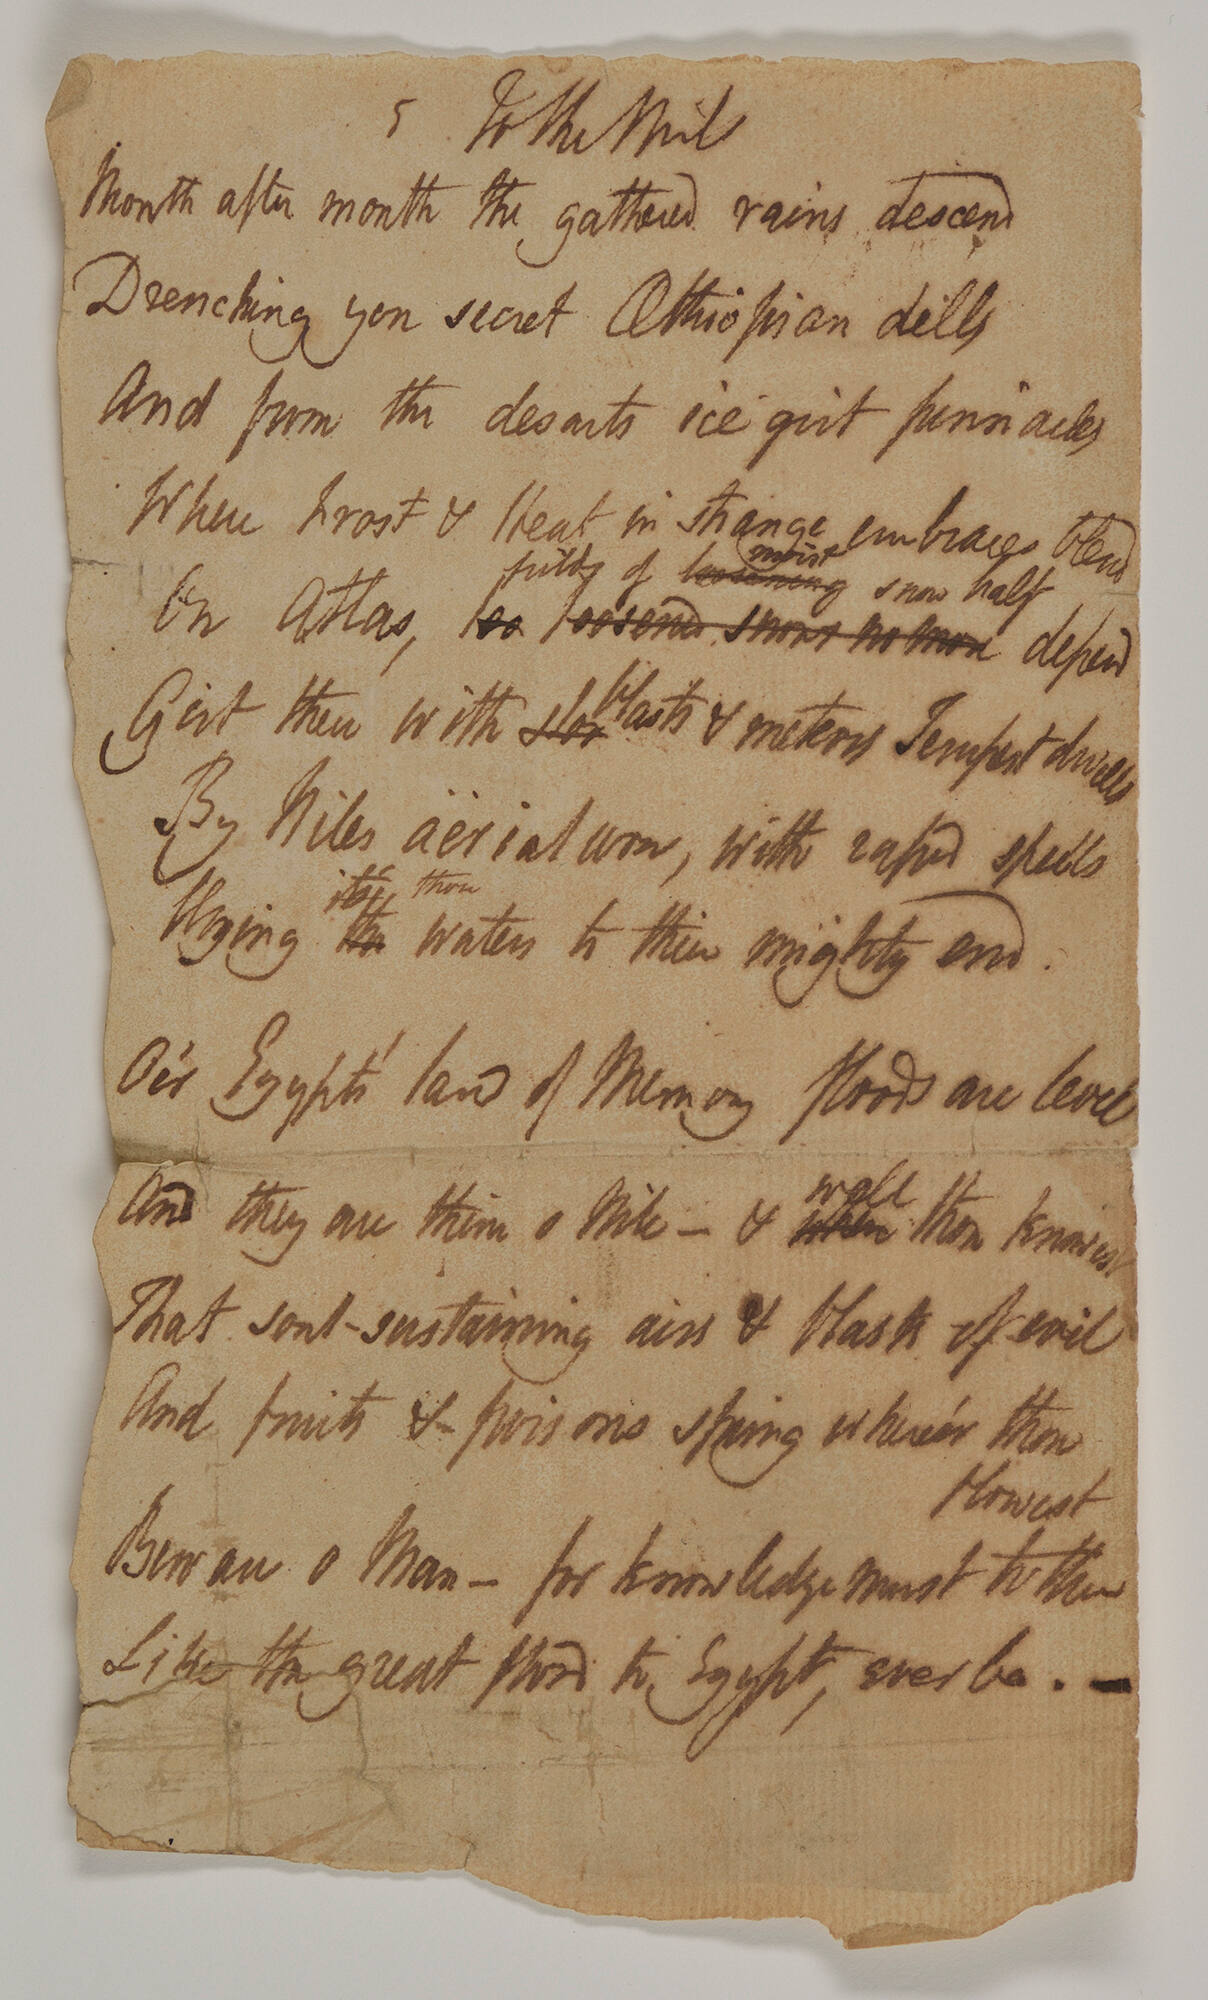 5 To the Nile
Month after month the gathered rains descend
Drenching yon secret Æthiopian dells
And from the desarts ice girt pinnacles
Where Frost & Heat in strange embraces blend
moist
fields of loosening snow half
On Atlas, loosend snows no more depend
Girt there with blasts & meteors Tempest dwells
By Niles äërial urn, with rapid spells
thou
Urging waters to their mighty end.
O'er Egypts' land of Memory floods are level
well
And they are thine o Nile – & when thou knowest
That soul-sustaining airs & blasts of evil
And fruits & poisons spring where'er thou
flowest
Beware o Man – for knowledge must to thee
Like the great flood to Egypt, ever be. –